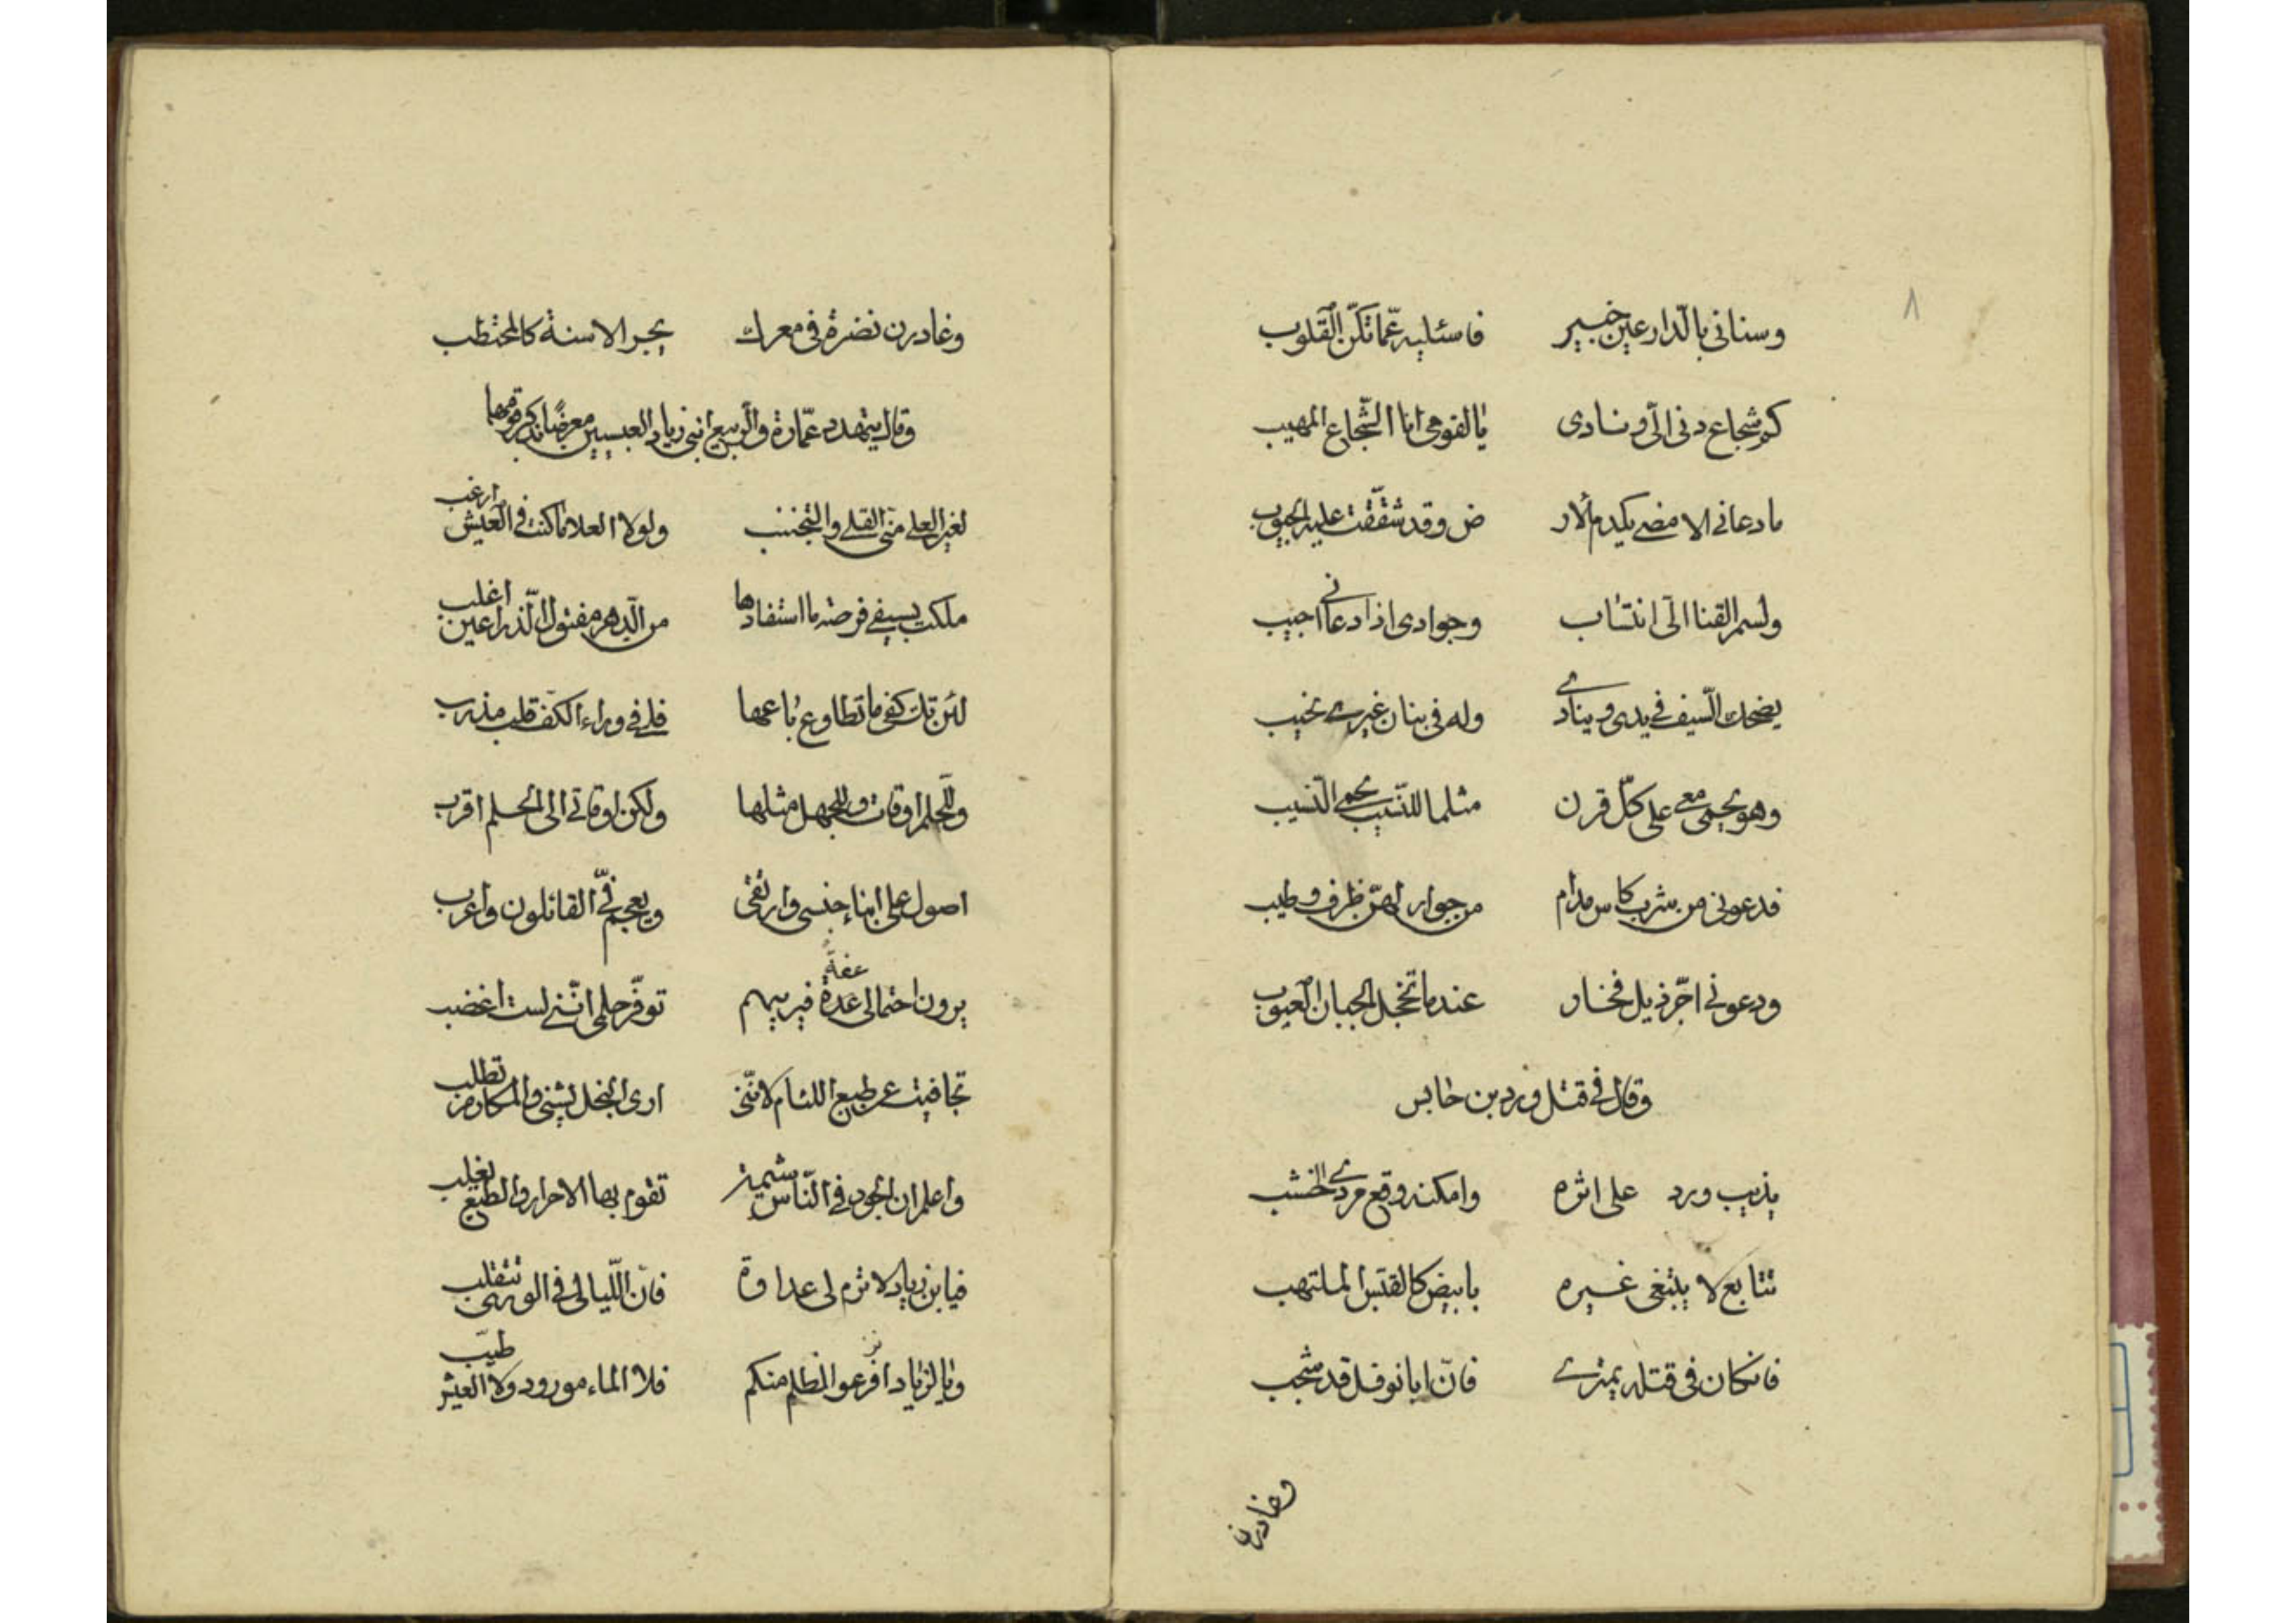 ٨
وسنانى بالدّار عين خبير فاسئليه عمّا تكنّ القلوب
كم شجاع دنى الىّ ونادى يا لقومى انا الشّجاع المهيب
ما دعانى الا مضى يكدم الار ض وقد شقّقت عليه الجيوب
ولسمر القنا الىّ انتساب وجوادى اذا دعانى اجيب
يضحك السّيف فى يدى وينادى وله فى بنان غيرى نحيب
وهو يحمى معى على كلّ قرن مثلما للنّسيب يحمى النّسيب
فدعونى من شرب كاس مدام من جوار لهنّ ظرف وطيب
ودعونى اجرّ ذيل فخار عندما تخجل الجبان العيوب
وقال فى قتل ورد بن حابس
يذيب ورد على اثره وامكنه وقع مردى الخشب
تتابع لا يبتغى غيره بابيض كالقبس الملتهب
فانكان فى قتله يمترى فانّ ابا نوفل قد شجب
وغادرن
وغادرن نضرة فى معرك يجر الاسنة كالمحتطب
وقال يتهدد عمّارة والرّبيع ابنى زياد العبسيين معرضًا بذكر قومهما
لغير العلى منّى القلى والتجنب ولولا العلا ما كنت فى العيش ارغب
ملكت بسيفى فرصة ما استفادها من الدّهر مفتول الذّراعين اغلب
لئن تك كفى ما تطاوع باعها فلى فى وراء الكفّ قلب مذرب
وللحلم اوقات وللجهل مثلها ولكن اوقاتى الى الحلم اقرب
اصول على ابناء جنسى وارتقى ويعجم فىّ القائلون واعرب
يرون احتمالى عدة فيريبهم توفّر حلمى انّنى لست اغضب
عفة
تجافيت عن طبع اللئام لانّنى ارى البخل يشنى والمكارم تطلب
واعلم ان الجود فى النّاس شيمة تقوم بها الاحرار والطبع يغلب
فيا بن زياد لا ترم لى عداوة فانّ اللّيالى فى الورى تتقلب
ويا لزياد افرعوا الظلم منكم فلا الماء مورود ولا العيش طيّب
نز